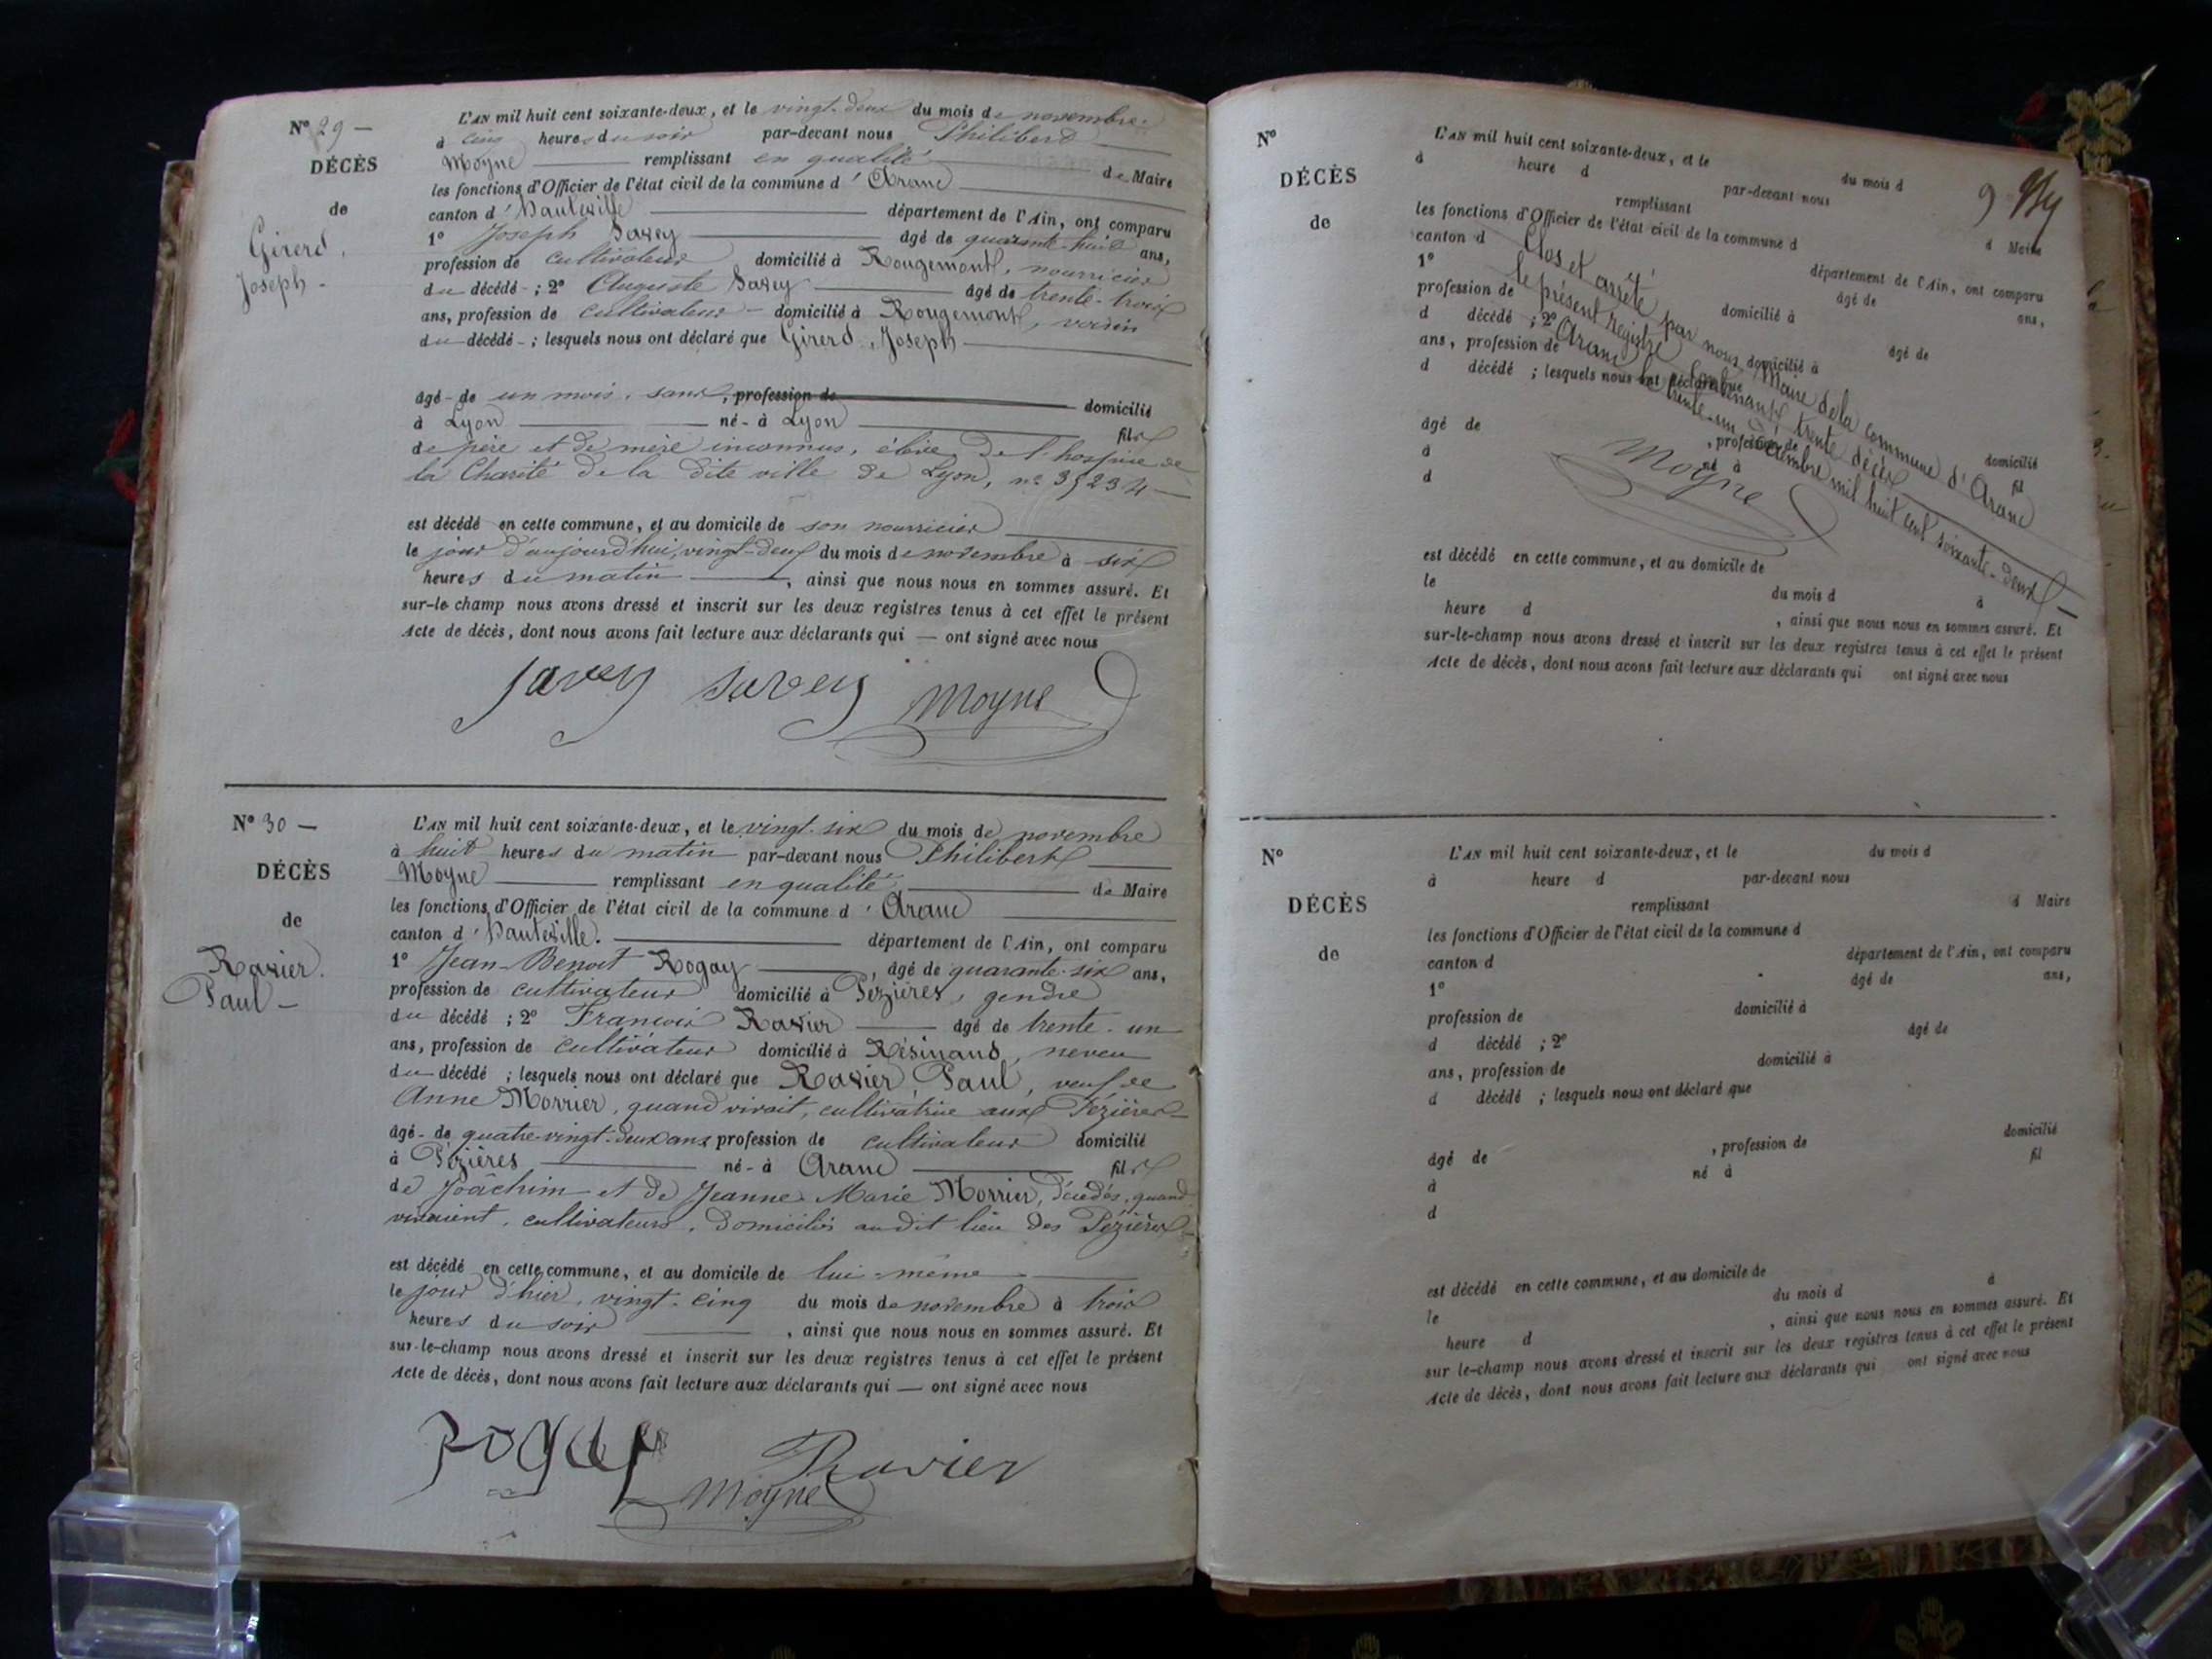 N° 29 —
DÉCÈS
de
Girerd,
Joseph -
L'AN mil huit cent soixante-deux, et le vingt-deux du mois de novembre
à cinq heures du soir par-devant nous Philibert
Moyne remplissant en qualité de Maire
les fonctions d'Officier de l'état civil de la commune d'Aranc
canton d'Hauteville département de l'Ain, ont comparu
1° Joseph Savey âgé de quarante-huit ans,
profession de cultivateur domicilié à Rougemont, nourricier
du décédé - ; 2° Auguste Savey âgé de trente-trois
ans, profession de cultivateur - domicilié à Rougemont, voisin
du décédé - ; lesquels nous ont déclaré que Girerd, Joseph
âgé - de un mois, sans, profession de domicilié
à Lyon né - à Lyon fils
de père et de mère inconnus, élève de l'hospice de
la Charité de la dite ville de Lyon, n° 35234
est décédé en cette commune, et au domicile de son nourricier
le jour d'aujourd'hui, vingt-deux du mois de novembre à six
heures du matin, ainsi que nous nous en sommes assuré. Et
sur-le champ nous avons dressé et inscrit sur les deux registres tenus à cet effet le présent
Acte de décès, dont nous avons fait lecture aux déclarants qui — ont signé avec nous
Savey Savey Moyne
N° 30 —
DÉCÈS
de
Ravier.
Paul -
L'AN mil huit cent soixante-deux, et le vingt-six du mois de novembre
à huit heures du matin par-devant nous Philibert
Moyne remplissant en qualité de Maire
les fonctions d'Officier de l'état civil de la commune d'Aranc
canton d'Hauteville. département de l'Ain, ont comparu
1° Jean-Benoit Rogay, âgé de quarante-six ans,
profession de cultivateur domicilié à Pézières, gendre
du décédé ; 2° François Ravier âgé de trente-un
ans, profession de cultivateur domicilié à Résinand, neveu
du décédé ; lesquels nous ont déclaré que Ravier Paul, veuf de
Anne Morrier, quand vivait, cultivatrice aux Pézières
âgé - de quatre-vingt-deux ans profession de cultivateur domicilié
à Pézières né - à Aranc fils
de Joachim et de Jeanne Marie Morrier, décédés, quand
vivaient, cultivateurs, domiciliés audit lieu des Pézières
est décédé en cette commune, et au domicile de lui-même
le jour d'hier, vingt-cinq du mois de novembre à trois
heures du soir, ainsi que nous nous en sommes assuré. Et
sur-le-champ nous avons dressé et inscrit sur les deux registres tenus à cet effet le présent
Acte de décès, dont nous avons fait lecture aux déclarants qui — ont signé avec nous
Rogay Ravier
Moyne
N°
DÉCÈS
de
L'AN mil huit cent soixante-deux, et le du mois d
à heure d par-devant nous
remplissant d Maire
les fonctions d'Officier de l'état civil de la commune d
canton d département de l'Ain, ont comparu
1° âgé de ans,
profession de domicilié à
d décédé ; 2° âgé de
ans, profession de domicilié à
d décédé ; lesquels nous ont déclaré que
âgé de , profession de domicilié
à né à fil
d
Clos et arrêté par nous Maire de la commune d'Aranc
le présent registre contenant trente décès
Aranc le trente-un décembre mil huit cent soixante-deux
Moyne
est décédé en cette commune, et au domicile de
le du mois d à
heure d , ainsi que nous nous en sommes assuré. Et
sur-le-champ nous avons dressé et inscrit sur les deux registres tenus à cet effet le présent
Acte de décès, dont nous avons fait lecture aux déclarants qui ont signé avec nous
N°
DÉCÈS
de
L'AN mil huit cent soixante-deux, et le du mois d
à heure d par-devant nous
remplissant d Maire
les fonctions d'Officier de l'état civil de la commune d
canton d département de l'Ain, ont comparu
1° âgé de ans,
profession de domicilié à
d décédé ; 2° âgé de
ans, profession de domicilié à
d décédé ; lesquels nous ont déclaré que
âgé de , profession de domicilié
à né à fil
d
est décédé en cette commune, et au domicile de
le du mois d à
heure d , ainsi que nous nous en sommes assuré. Et
sur le-champ nous avons dressé et inscrit sur les deux registres tenus à cet effet le présent
Acte de décès, dont nous avons fait lecture aux déclarants qui ont signé avec nous